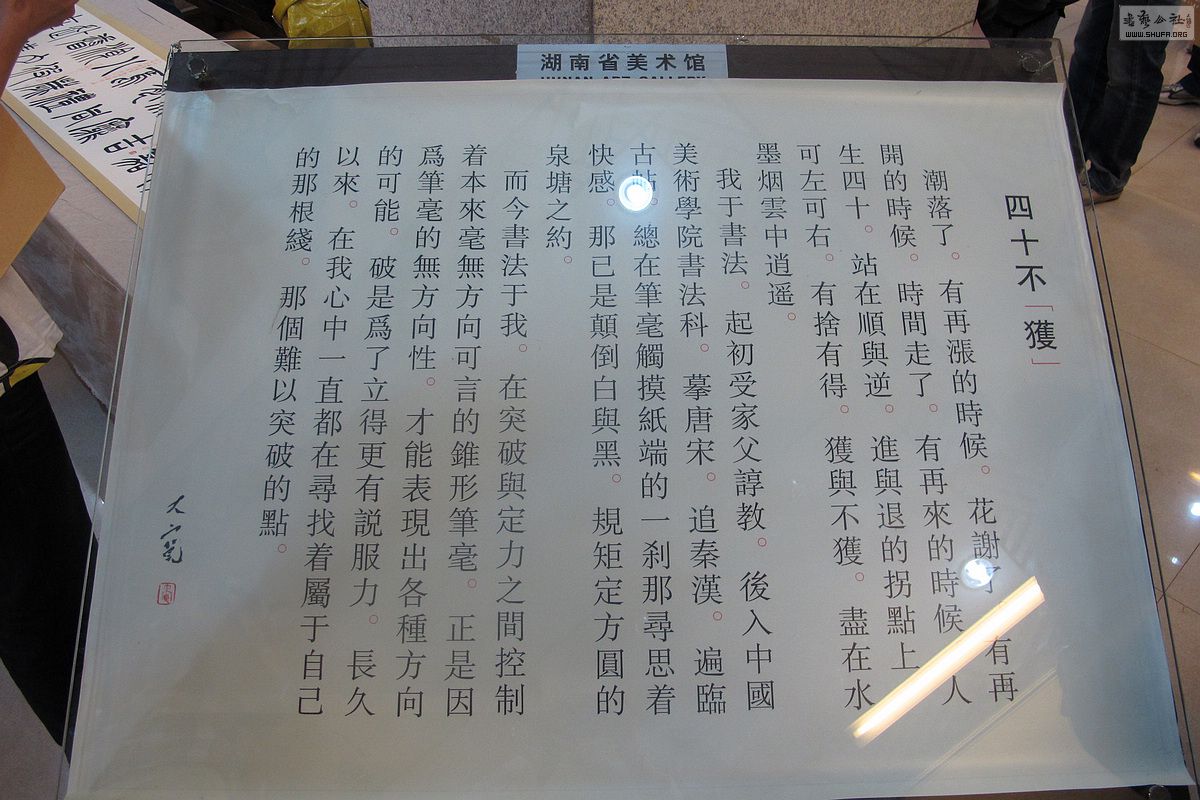 書藝公社
WWW.SHUFA.ORG
湖南省美术馆
HUNAN ART GALLERY
四十不「獲」
潮落了。有再漲的時候。花謝了。有再
開的時候。時間走了。有再來的時候。人
生四十。站在順與逆。進與退的拐點上。
可左可右。有捨有得。獲與不獲。盡在水
墨烟雲中逍遥。
我于書法。起初受家父諄教。後入中國
美術學院書法科。摹唐宋。追秦漢。遍臨
古帖。總在筆毫觸摸紙端的一刹那尋思着
快感。那已是顛倒白與黑。規矩定方圓的
泉塘之約。
而今書法于我。在突破與定力之間控制
着本來毫無方向可言的錐形筆毫。正是因
爲筆毫的無方向性。才能表現出各種方向
的可能。破是爲了立得更有説服力。長久
以來。在我心中一直都在尋找着屬于自己
的那根綫。那個難以突破的點。